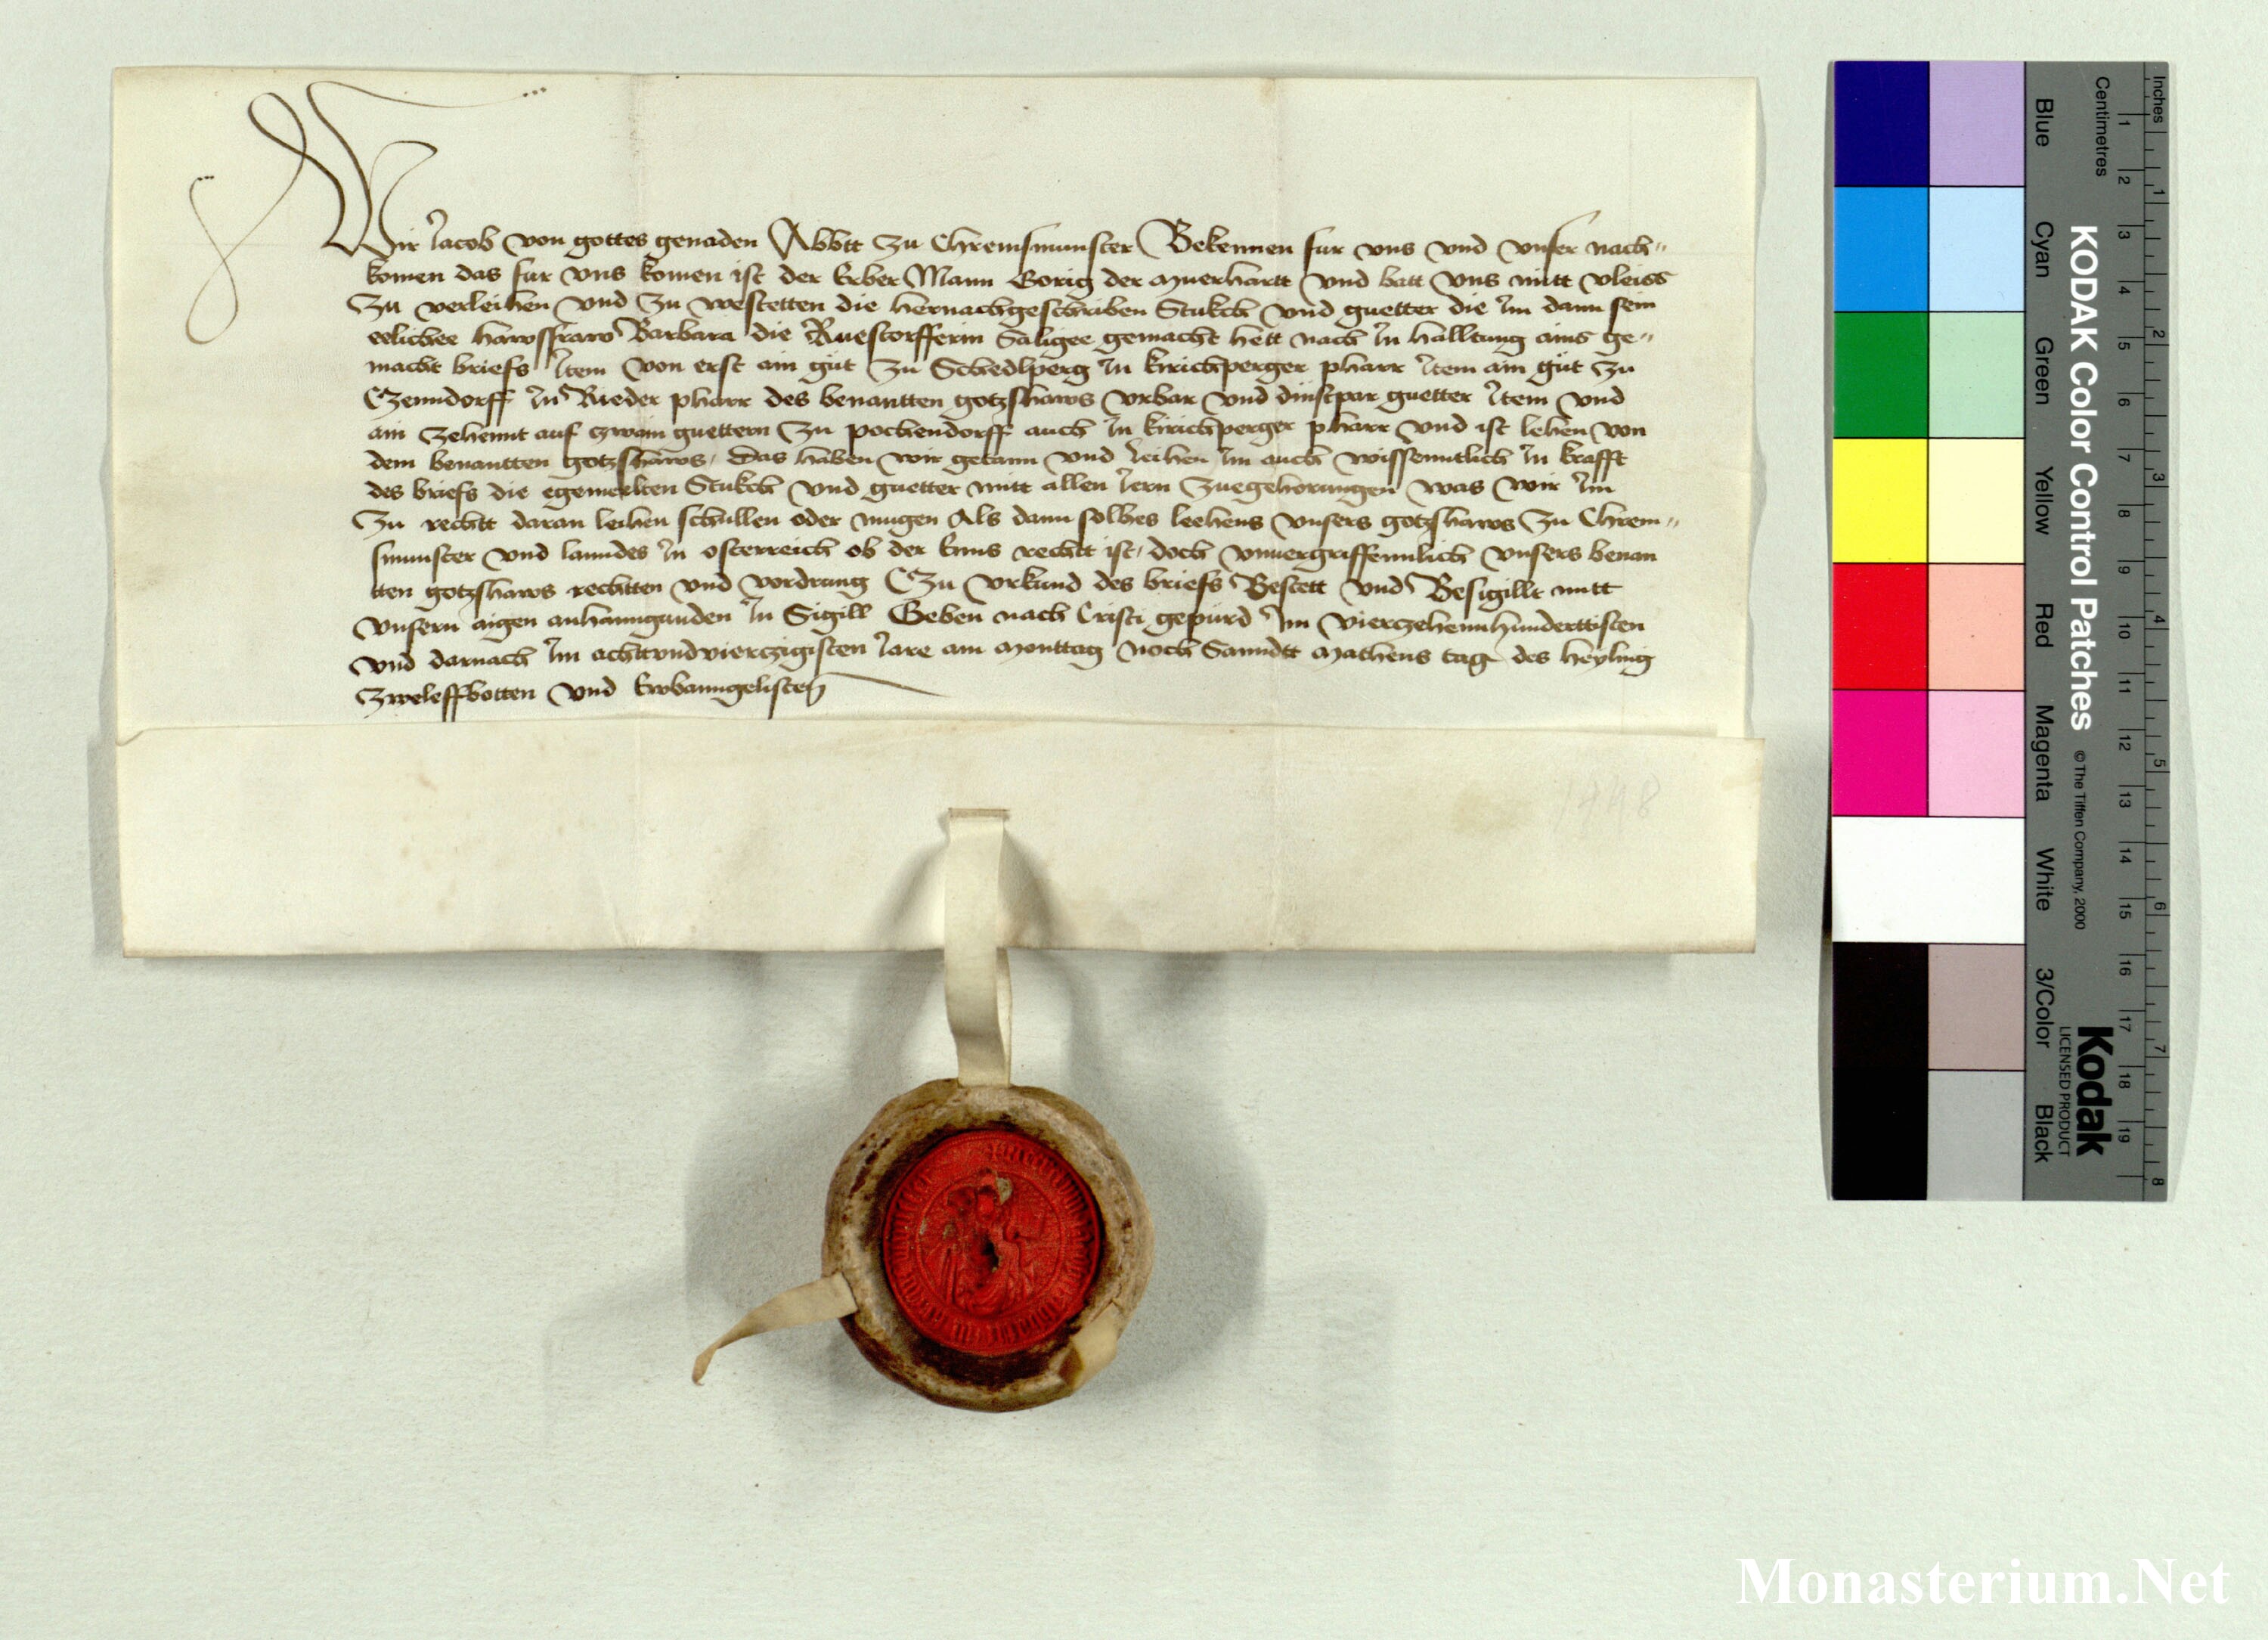 Wir Jacob von gottes genaden Abbtt zu Chremsmunster Bekennen fur vns vnd vnser nach〃
komen das fur vns komen ist der Erber Mann Gorig der Muerhartt vnd batt vns mitt vleiss
zu verleihen vnd zu westetten die hernachgeschriben Stukch vnd guetter die Im dann sein
eelichee hawsfraw Barbara die Ruestorfferin Saligee gemacht hett nach In halltung ains ge〃
macht briefs Item von erst ain gut zu Schedlperg In kirichperger pharr Item ain gut zu
Czenndorff In Rieder pharr des benantten gotzshaws vrbar vnd dinstpar guetter Item vnd
ain zehennt auf czwain guettern zu pochendorff auch In kirichperger pharr vnd ist lehen von
dem benantten gotzshaws, Das haben wir getann vnd leihen Im auch wissenntlich In krafft
des briefs die egemelten Stukch vnd guetter mitt allen Iern zuegehorungen was wir Im
zu rechtt daran leihen schullen oder mugen Als dann solhes leehens vnsers gotzshaws zu Chrem〃
smunster vnd lanndes In osterreich ob der Enns rechtt ist, doch vnuergriffennlich vnsers benan
tten gotzshaws rechtten vnd vordrung Czu vrkund des briefs Bestett vnd Besigillt mitt
vnserm aigen anhanngunden In Sigill Geben nach Cristi gepurd Im vierczehennhunderttisten
vnd darnach Im achttvndvierczigisten Iare am Monttag noch Sanndtt Matheus tag des heyling
zweleffbotten vnd Ewbanngelisten
1448
KODAK Color Control Patches
© The Tiffen Company, 2000
Kodak
LICENSED PRODUCT
Blue
Cyan
Green
Yellow
Red
Magenta
White
3/Color
Black
Inches
1 2 3 4 5 6 7 8
Centimetres
1 2 3 4 5 6 7 8 9 10 11 12 13 14 15 16 17 18 19
Monasterium.Net